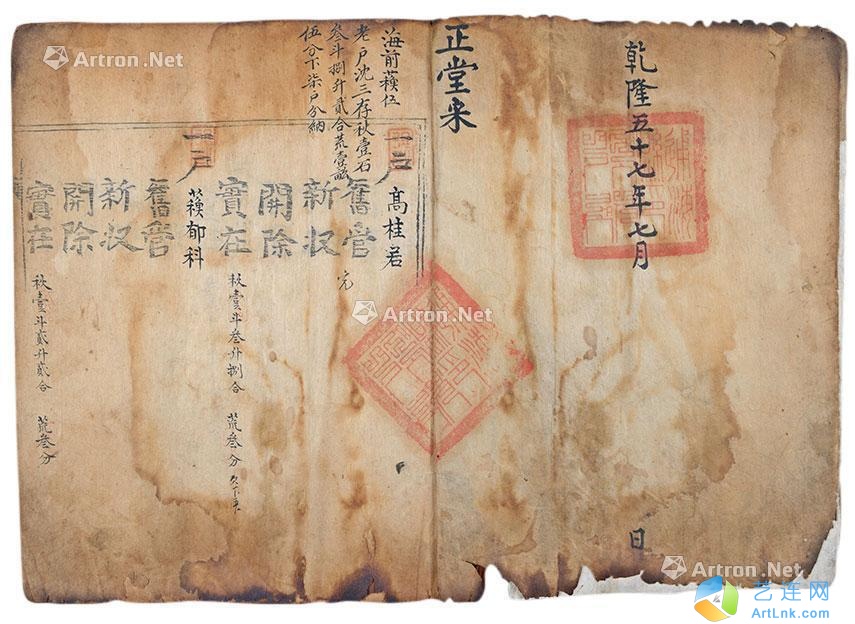 乾隆五十七年七月 日
正堂朱
海前蘋伍
老户沈三存秋壹石
叁斗捌升貳合荒壹畝
伍分下柒户分納
一户 高桂若
舊管 完
新收
開除
實在 秋壹斗叁升捌合 荒叁分
一户 蘋郁科
舊管
新收
開除
實在 秋壹斗貳升貳合 荒叁分
Artron.Net
Artron.Net
Artron.Net
艺连网
ArtLnk.com